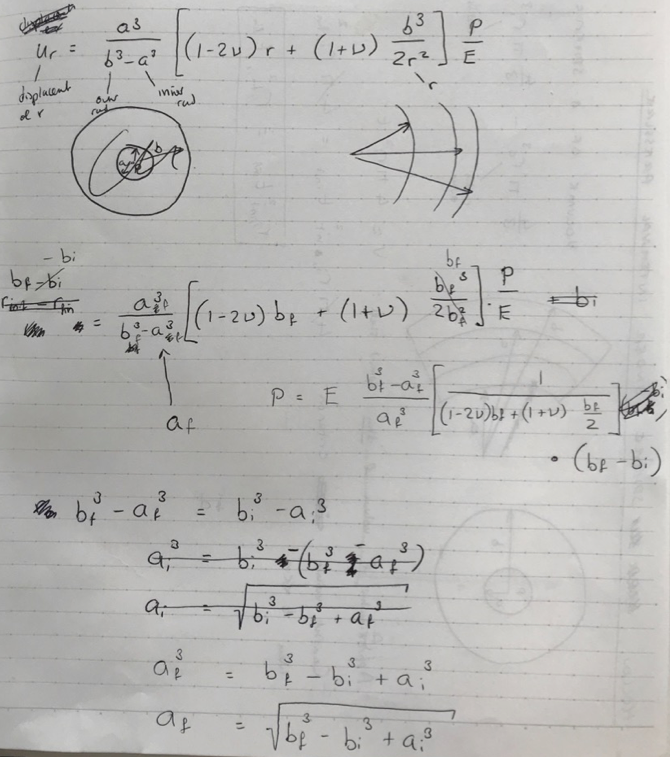 u_r = a³/(b³-a³) [(1-2ν) r + (1+ν) b³/2r²] P/E
displacent
at r
outer
rad
inner
rad
r
a
b
b_f - b_i = a_f³/(b_f³-a_f³) [(1-2ν) b_f + (1+ν) b_f³/2b_f²] · P/E
b_f
= b_i
a_f
P = E (b_f³-a_f³)/a_f³ [1/((1-2ν)b_f+(1+ν) b_f/2)]
• (b_f - b_i)
b_f³ - a_f³ = b_i³ - a_i³
a_i³ = b_i³ - (b_f³ - a_f³)
a_i = √(b_i³ - b_f³ + a_f³)
a_f³ = b_f³ - b_i³ + a_i³
a_f = √(b_f³ - b_i³ + a_i³)